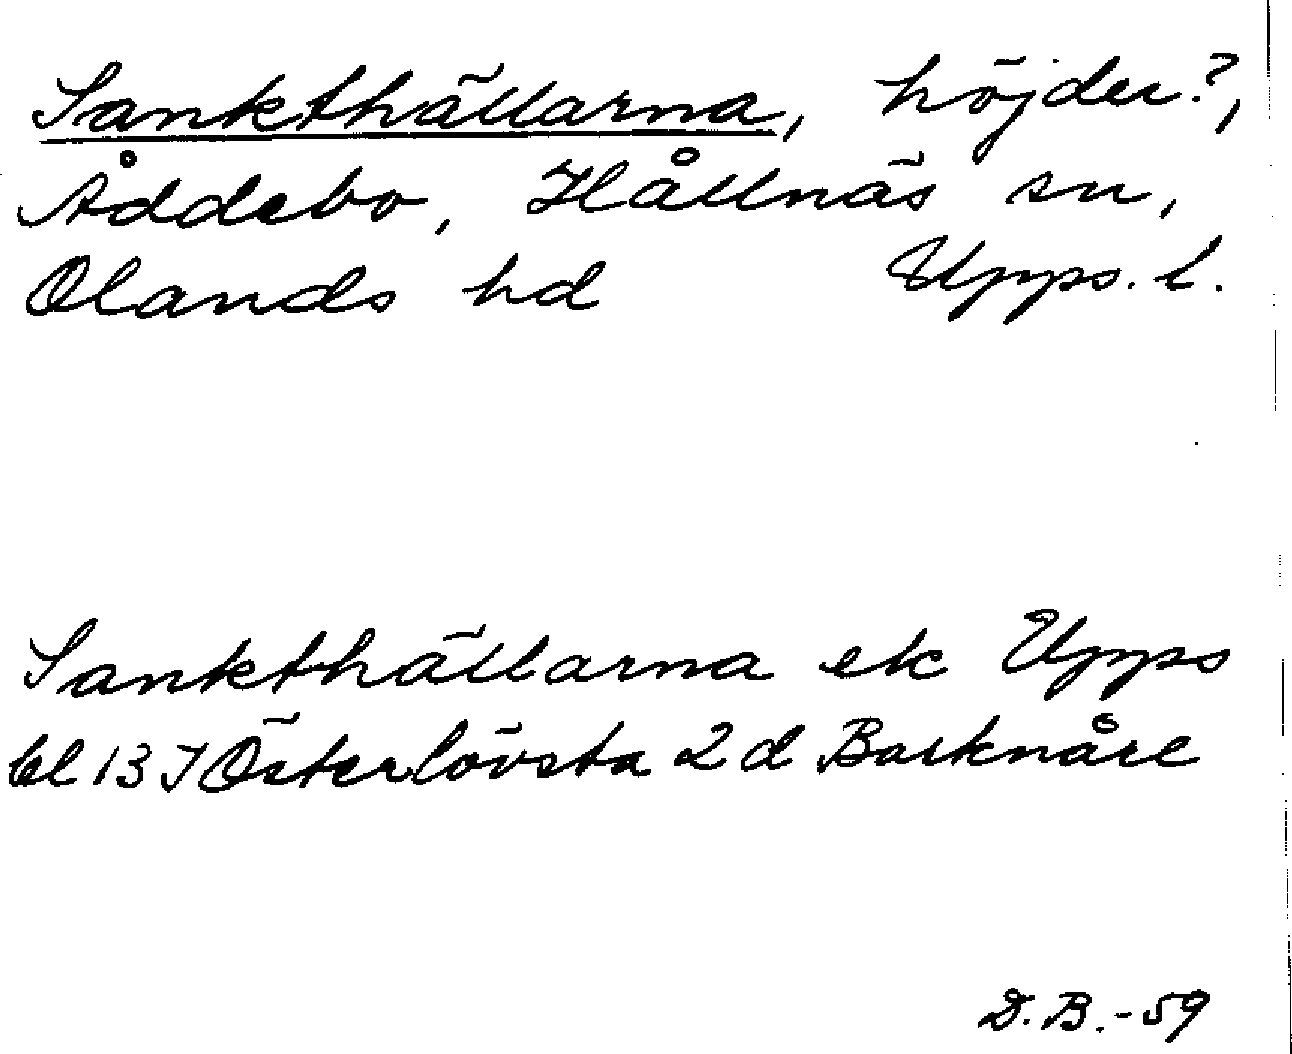 Sankthällarna, höjder?,
Åddebo, Hållnäs sn,
Olands hd Upps. l.
Sankthällarna ek Upps
bl 13 I Österlövsta 2 d Barknåre
D.B.-59